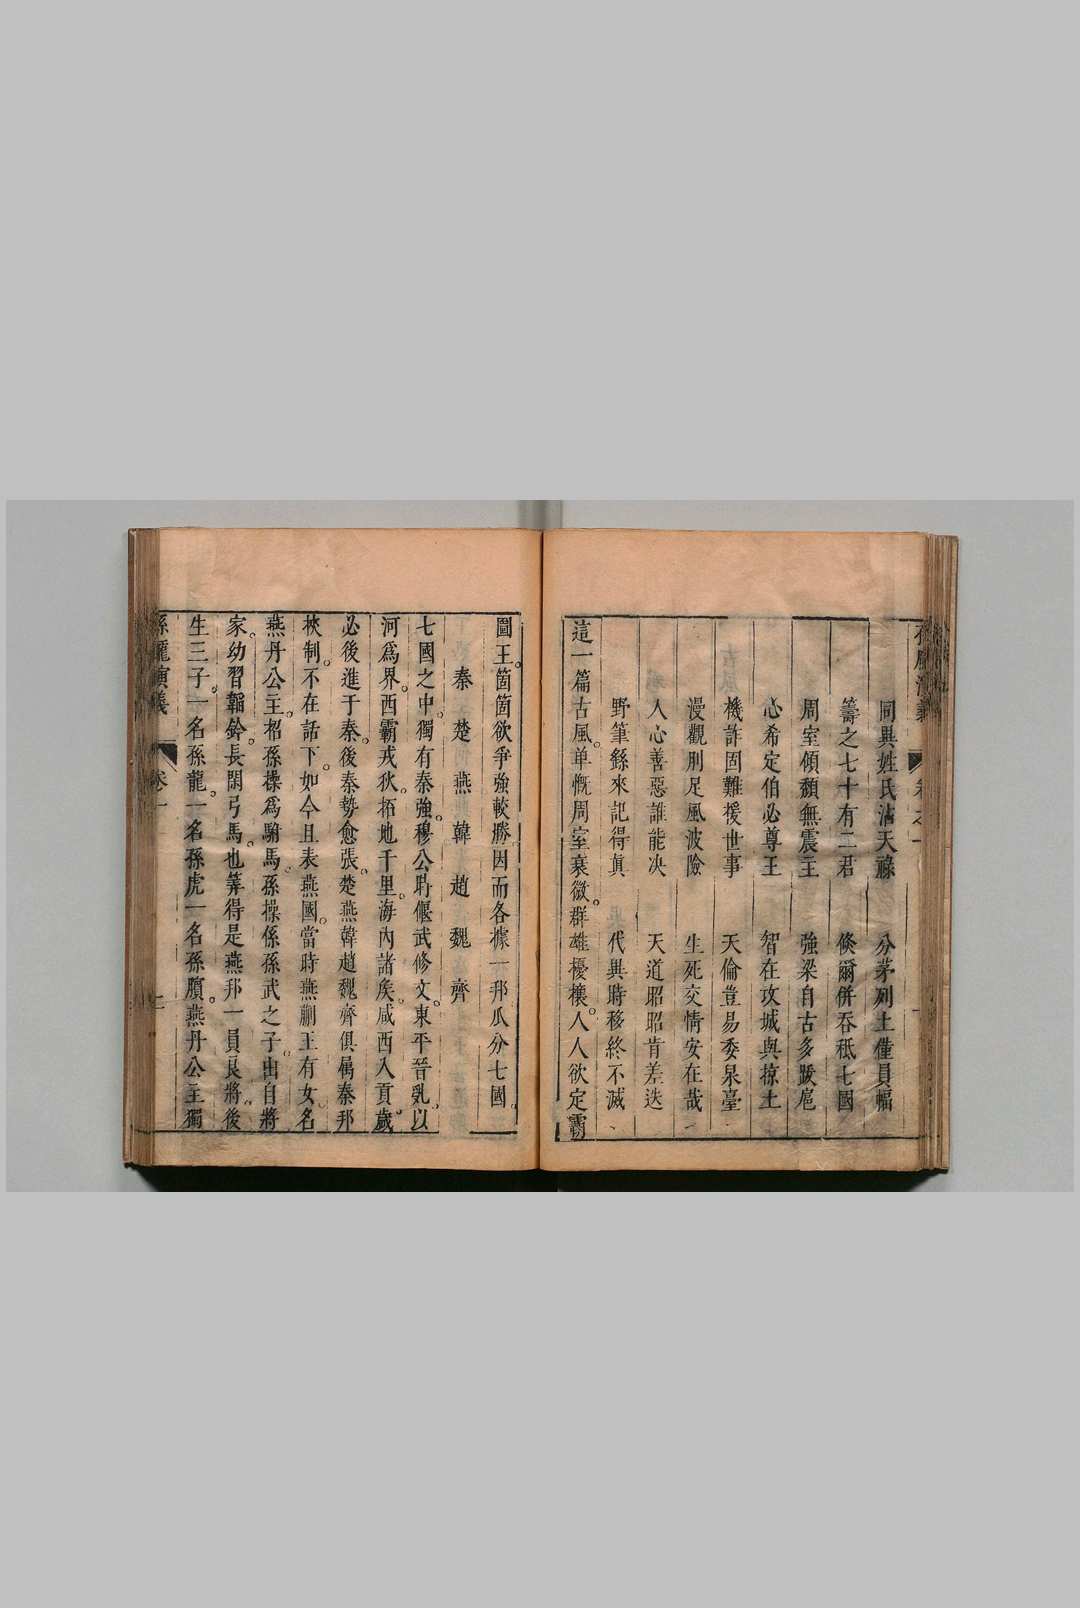 同異姓氏沾天祿　分茅列土僅員幅
籌之七十有二君　倏爾併吞秪七國
周室傾頹無震主　強梁自古多跋扈
心希定伯必尊王　智在攻城與掠土
機詐固難援世事　天倫豈易委泉臺
漫觀刖足風波險　生死交情安在哉
人心善惡誰能决　天道昭昭肯差迭
野筆繇來記得眞　代異時移終不滅
這一篇古風。单慨周室衰微。群雄擾攘。人人欲定霸
圖王。箇箇欲爭強較勝。因而各據一邦瓜分七國。
秦　楚　燕　韓　趙　魏　齊
七國之中。獨有秦強。穆公時偃武修文。東平晉乱。以
河爲界。西霸戎狄。拓地千里。海內諸矦。咸西入貢。歲
必後進于秦。後秦勢愈張。楚燕韓趙魏齊俱属秦邦
挾制。不在話下。如今且表燕國。當時燕蒯王有女。名
燕丹公主。招孫操爲駙馬。孫操係孫武之子。由自將
家。幼習韜鈴。長閑弓馬。也筭得是燕邦一員良將。後
生三子。一名孫龍。一名孫虎一名孫臏。燕丹公主獨
孫龐演義　卷一　二